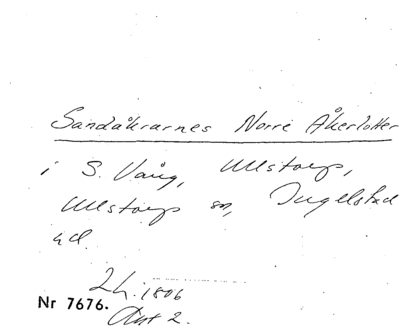 Sandåkrarnes Norre Åkerlotter
i S. Vång, Ullstorp,
Ullstorps sn, Ingelstad
hd.
2 h. 1806
Nr 7676.
Akt 2.